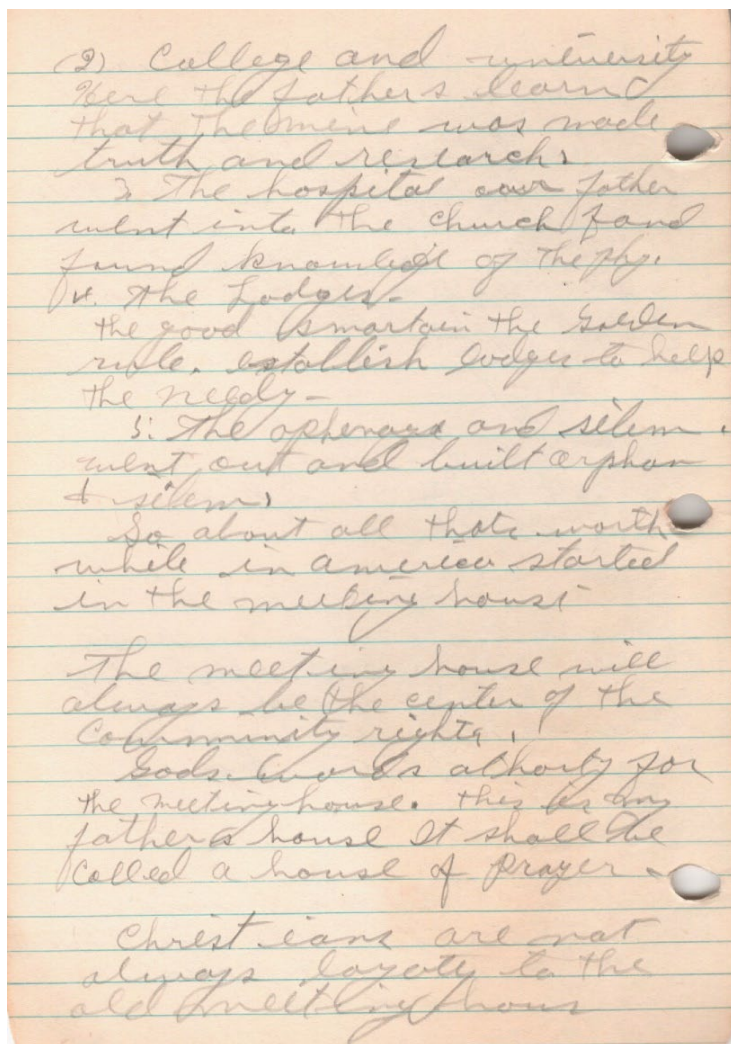 (2) College and university
Here the fathers learnd
that the mine was made
truth and research.
3. The hospital our father
went into the church fand
found knowledge of the phy.
4. The Lodges -
the good the Golden
rule. establish lodges to help
the needy -
5. The and silem.
went out and built orphan
& silem,
So about all thats worth
while in america started
in the meeting house
The meeting house will
always be the center of the
Community rights.
Gods words athority for
the meeting house. this is my
fathers house It shall be
called a house of prayer -
Christians are not
always loyoty to the
old meeting hous